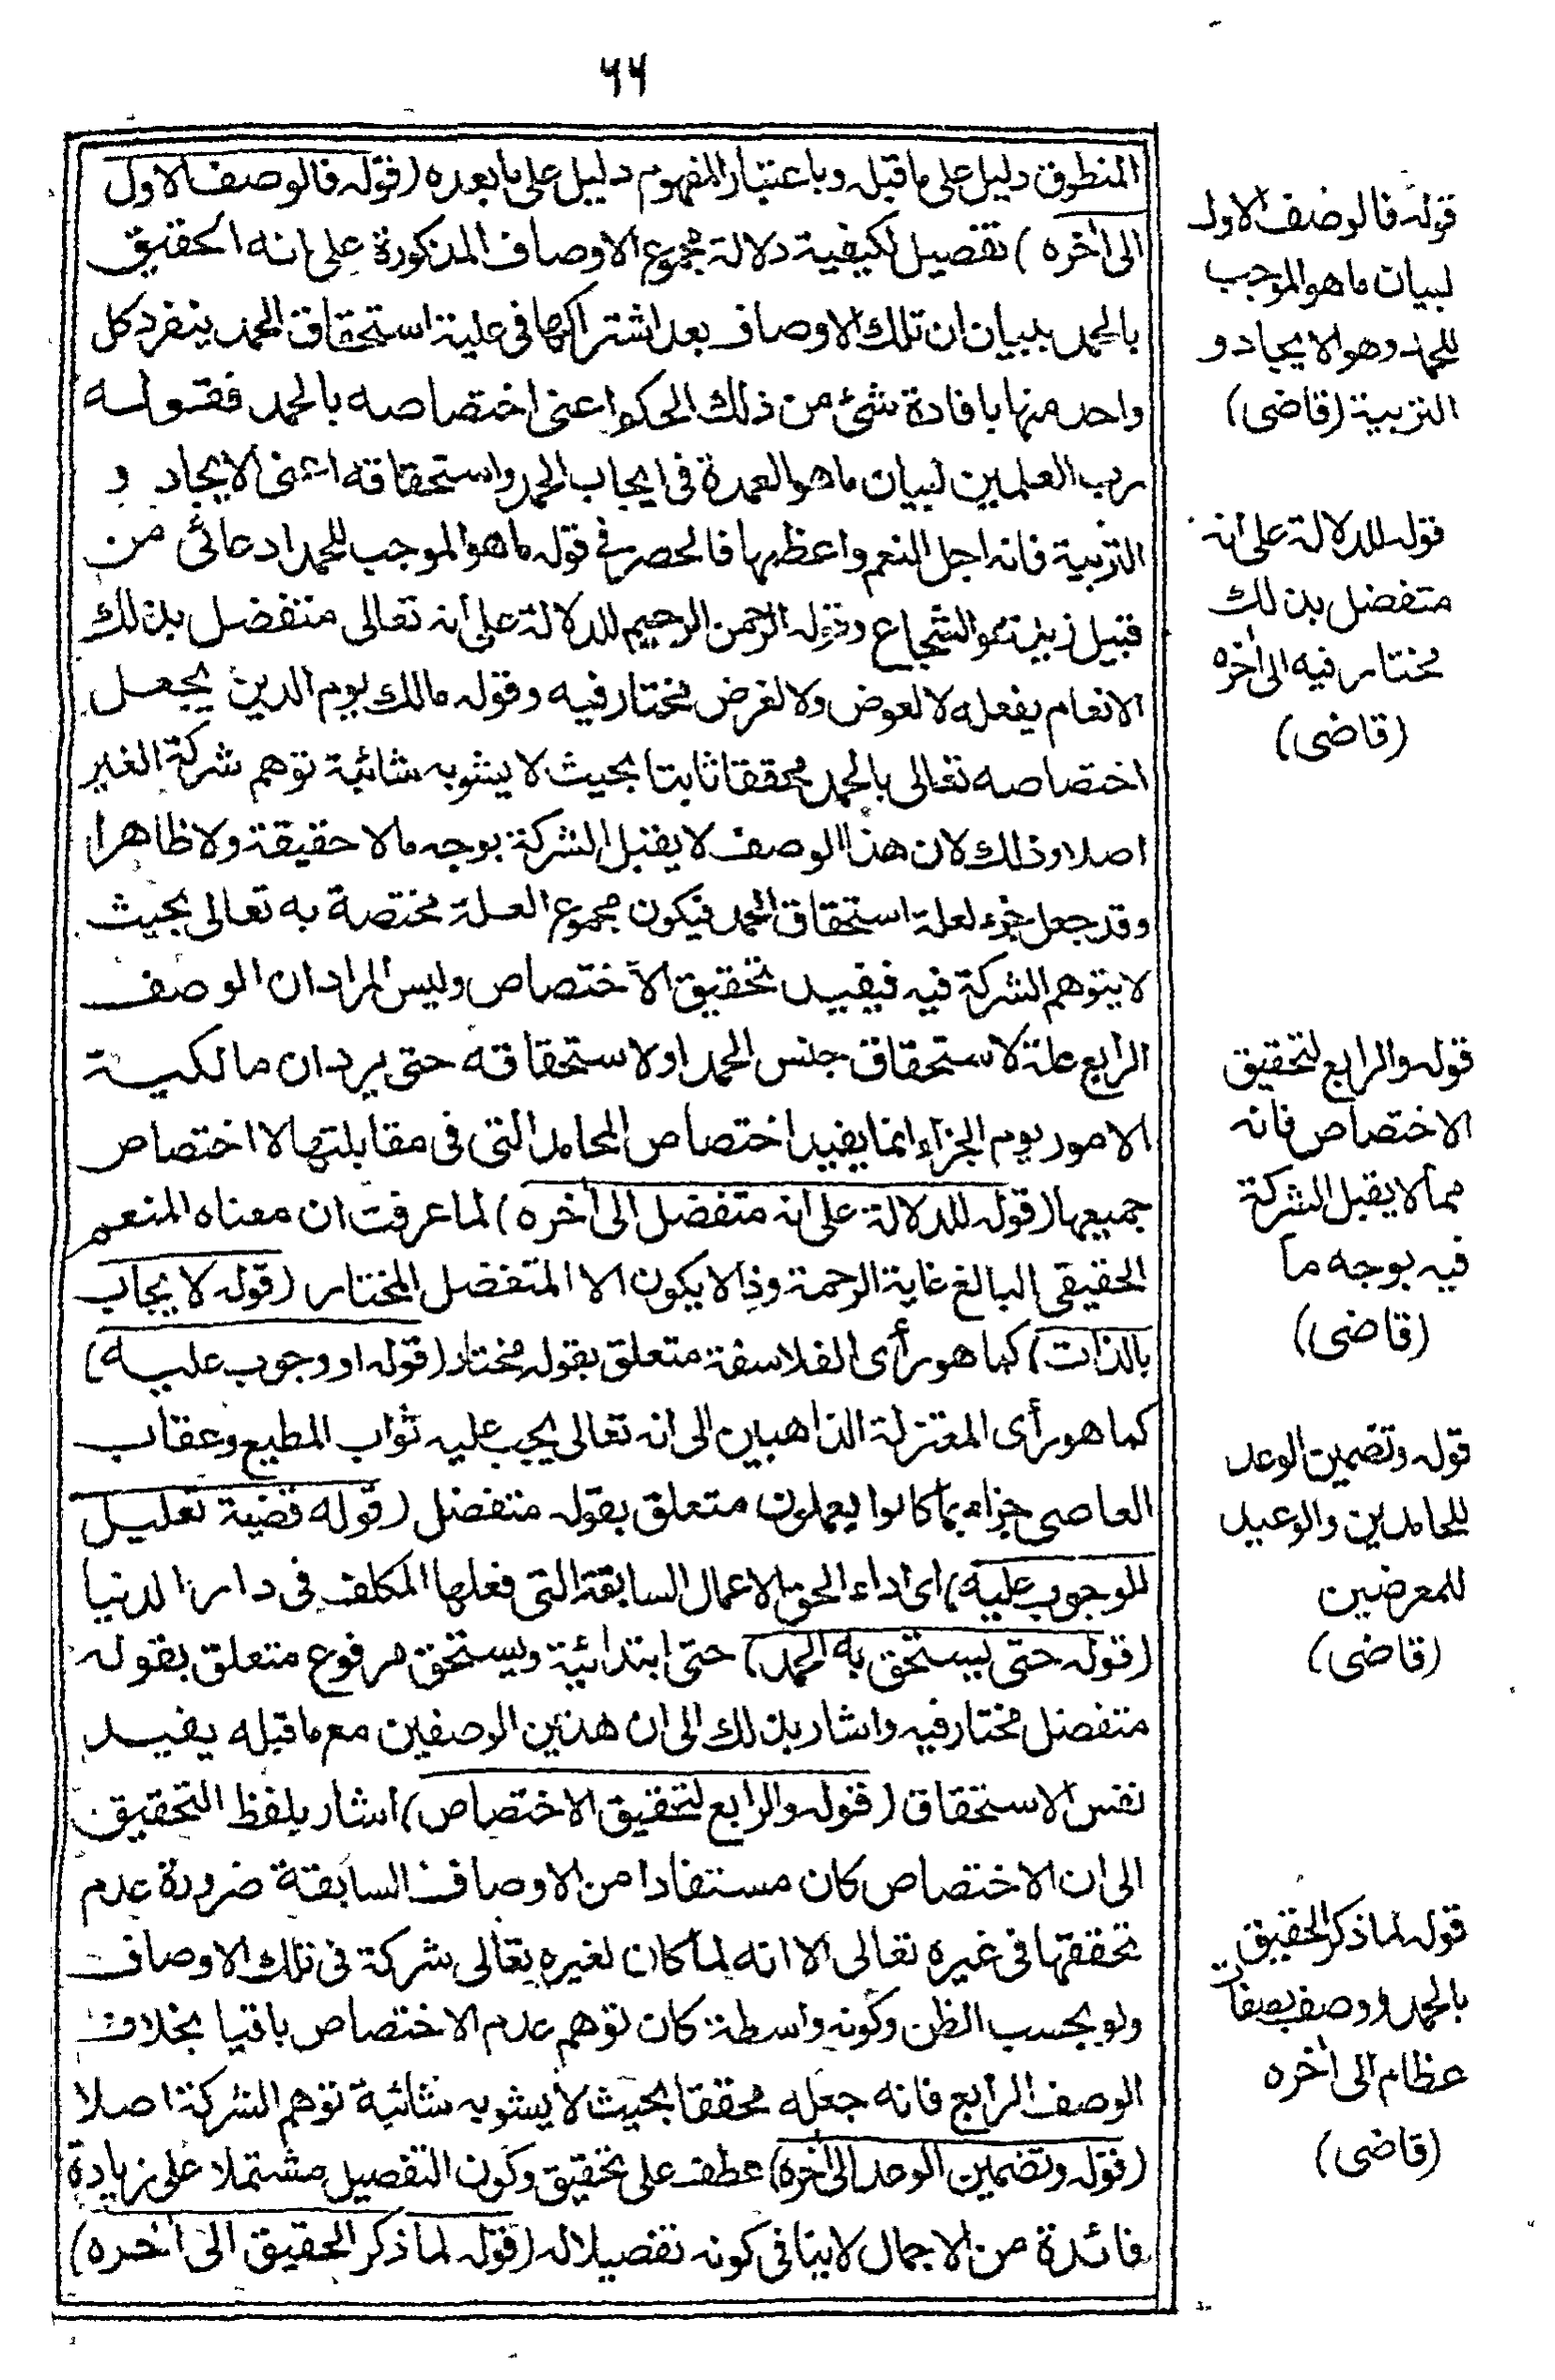 ٦٦
المنطوق دليل على ما قبله وباعتبار المفهوم دليل على ما بعده (قوله فالوصف الاول
الى أخره) تفصيل لكيفية دلالة مجموع الاوصاف المذكورة على انه الحقيق
بالحمد ببيان ان تلك الاوصاف بعد اشتراكها فى علية استحقاق الحمد ينفرد كل
واحد منها بافادة شئ من ذلك الحكم اعنى اختصاصه بالحمد فقوله
رب العلمين لبيان ما هو العمدة فى ايجاب الحمد واستحقاقه اعنى الايجاد و
التربية فانه اجل النعم واعظمها فالحصر فى قوله ما هو الموجب للحمد ادعائى من
قبيل زيد هو الشجاع وقوله الرحمن الرحيم للدلالة على أنه تعالى متفضل بذلك
الانعام يفعله لا لعوض ولا لغرض مختار فيه وقوله مالك يوم الدين يجعل
اختصاصه تعالى بالحمد محققا ثابتا بحيث لا يشوبه شائبة توهم شركة الغير
اصلا وذلك لان هذا الوصف لا يقبل الشركة بوجه ما لا حقيقة ولا ظاهرا
وقد جعل جزء لعلة استحقاق الحمد فيكون مجموع العلة مختصة به تعالى بحيث
لا يتوهم الشركة فيه فيفيد تحقيق الاختصاص وليس المراد ان الوصف
الرابع علة لاستحقاق جنس الحمد او لاستحقاقه حتى يرد ان مالكية
الامور يوم الجزاء انما يفيد اختصاص المحامد التى فى مقابلتها لا اختصاص
جميعها (قوله للدلالة على انه متفضل الى أخره) لما عرفت ان معناه المنعم
الحقيقى البالغ غاية الرحمة وذا لا يكون الا المتفضل المختار (قوله لا يجاب
بالذات) كما هو رأى الفلاسفة متعلق بقوله مختار (قوله او وجوب عليه)
كما هو رأى المعتزلة الذاهبين الى انه تعالى يجب عليه ثواب المطيع وعقاب
العاصى جزاء بما كانوا يعملون متعلق بقوله متفضل (قوله قضية تعليل
للوجوب عليه) اى اداء الحق الاعمال السابقة التى فعلها المكلف فى دار الدنيا
(قوله حتى يستحق به الحمد) حتى ابتدائية ويستحق مرفوع متعلق بقوله
متفضل مختار فيه واشار بذلك الى ان هذين الوصفين مع ما قبله يفيد
نفس الاستحقاق (قوله والرابع لتحقيق الاختصاص) اشار بلفظ التحقيق
الى ان الاختصاص كان مستفادا من الاوصاف السابقة ضرورة عدم
تحققها فى غيره تعالى الا انه لما كان لغيره تعالى شركة فى تلك الاوصاف
ولو بحسب الظن وكونه واسطة كان توهم عدم الاختصاص باقيا بخلاف
الوصف الرابع فانه جعله محققا بحيث لا يشوبه شائبة توهم الشركة اصلا
(قوله وتضمين الوعد الى أخره) عطف على تحقيق وكون التفصيل مشتملا على زيادة
فائدة من الاجمال لا ينافى كونه تفصيلا له (قوله لما ذكر الحقيق الى أخره)
قوله فالوصف الاول
لبيان ما هو الموجب
للحمد وهو الايجاد و
التربية (قاضى)
قوله للدلالة على انه
متفضل بذلك
مختار فيه الى أخره
(قاضى)
قوله والرابع لتحقيق
الاختصاص فانه
مما لا يقبل الشركة
فيه بوجه ما
(قاضى)
قوله وتضمين الوعد
للحامدين والوعيد
للمعرضين
(قاضى)
قوله لما ذكر الحقيق
بالحمد ووصف بصفات
عظام الى أخره
(قاضى)